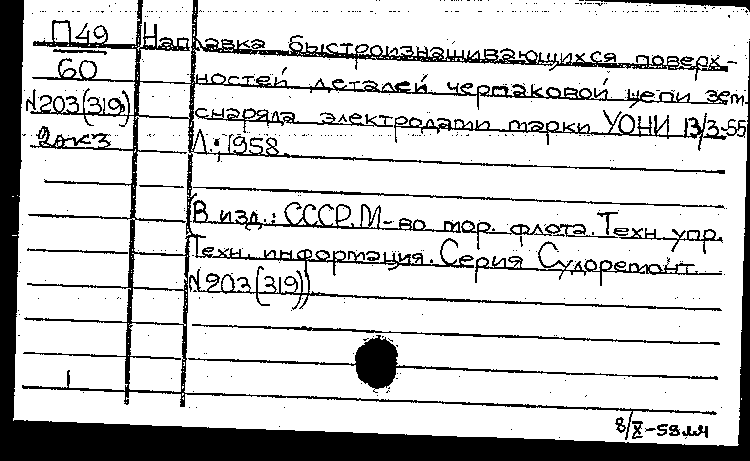 П49
60
N203(319)
2экз
Наплавка быстроизнашивающихся поверх-
ностей деталей черпаковой цепи зем.
снаряда электродами марки УОНИ 13/3-55
Л.; 1958.
(В изд.: СССР. М-во мор. флота. Техн. упр.
Техн. информация. Серия Судоремонт
N203(319))
1
8/X-58